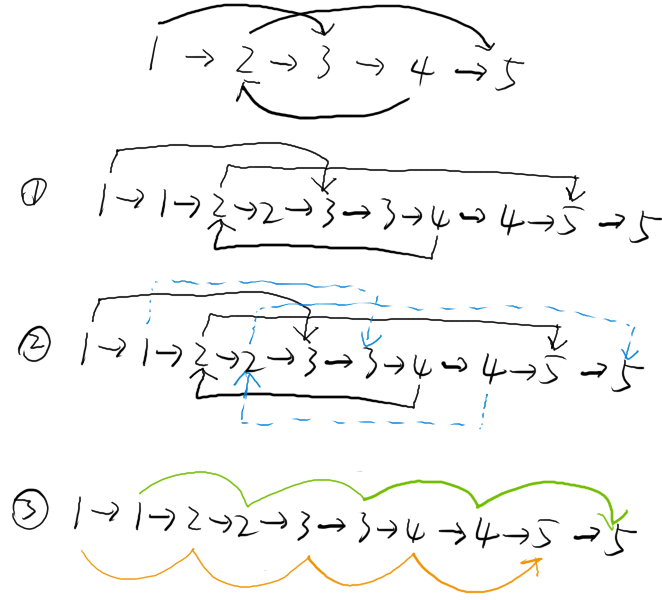 1 → 2 → 3 → 4 → 5
① 1 → 1 → 2 → 2 → 3 → 3 → 4 → 4 → 5 → 5
② 1 → 1 → 2 → 2 → 3 → 3 → 4 → 4 → 5 → 5
③ 1 → 1 → 2 → 2 → 3 → 3 → 4 → 4 → 5 → 5